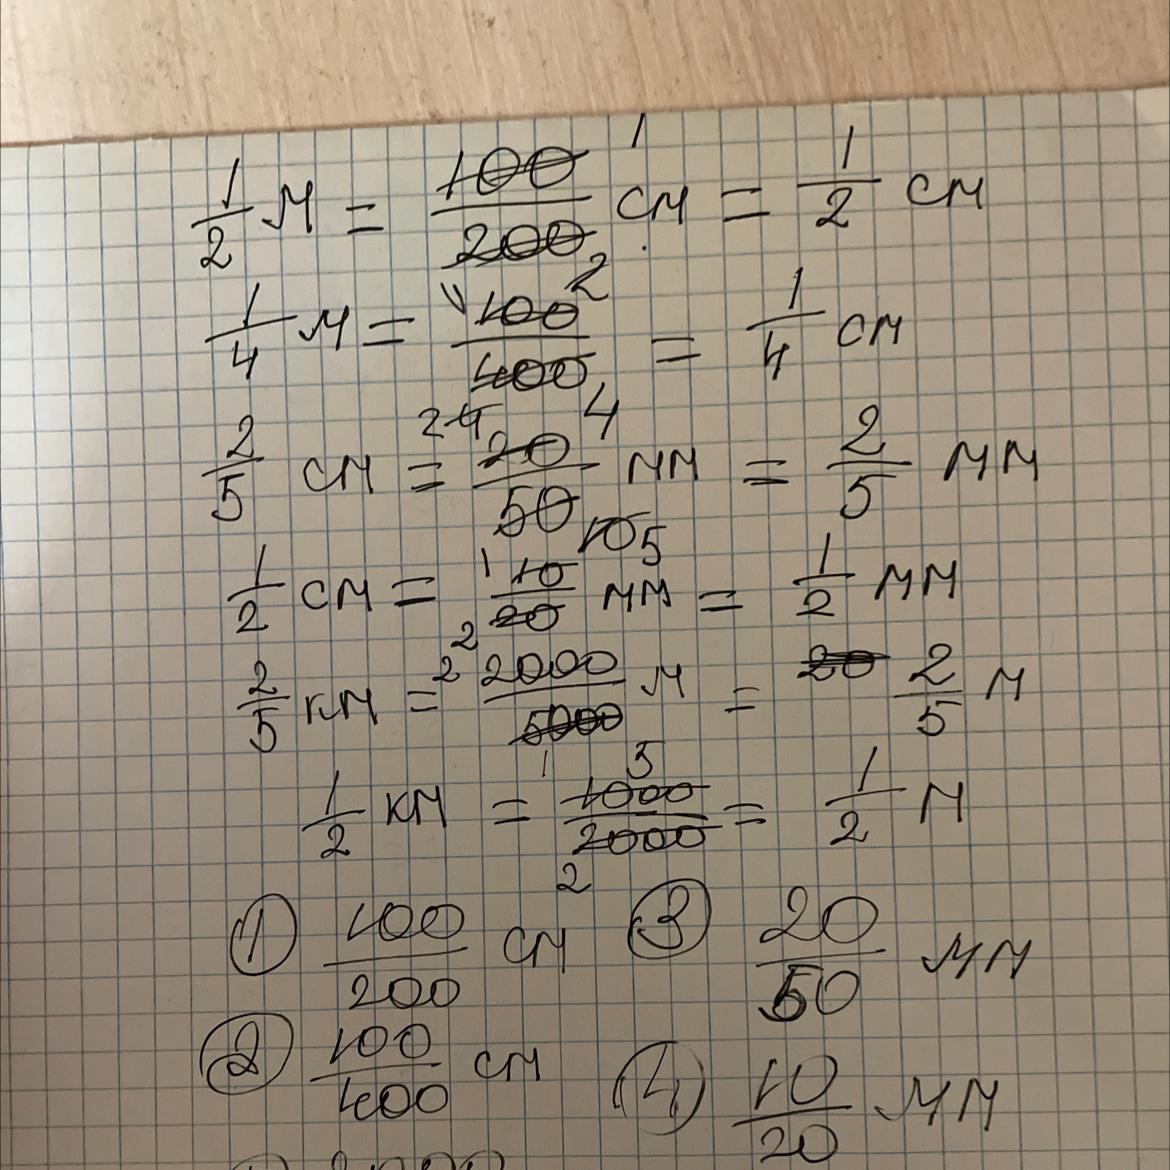 1/2 м = 100/200 1 см = 1/2 см
2
1/4 м = 1 100/400 = 1/4 см
4
2/5 см = 2 4 20/50 мм = 2/5 мм
10 5
1/2 см = 1 10/20 мм = 1/2 мм
2
2/5 км = 2 2000/5000 м = 20 2/5 м
5
1/2 км = 1 1000/2000 = 1/2 м
2
① 100/200 см ③ 20/50 мм
② 100/400 см ④ 10/20 мм